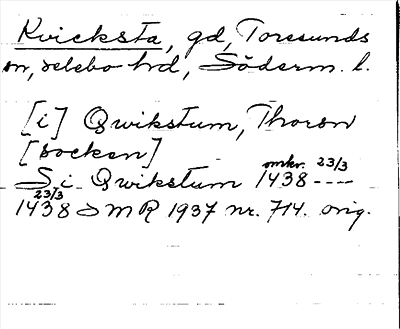 Kvicksta, gd, Toresunds
sn, Selebo hd, Söderm. l.
[i] Qwikstum, Thoron
[socken]
S i Qwikstum omkr. 23/3 1438 ----
23/3 1438 SMR 1937 nr. 714. orig.